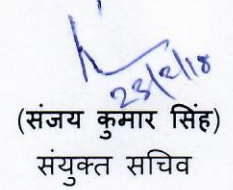 23/2/18
(संजय कुमार सिंह)
संयुक्त सचिव